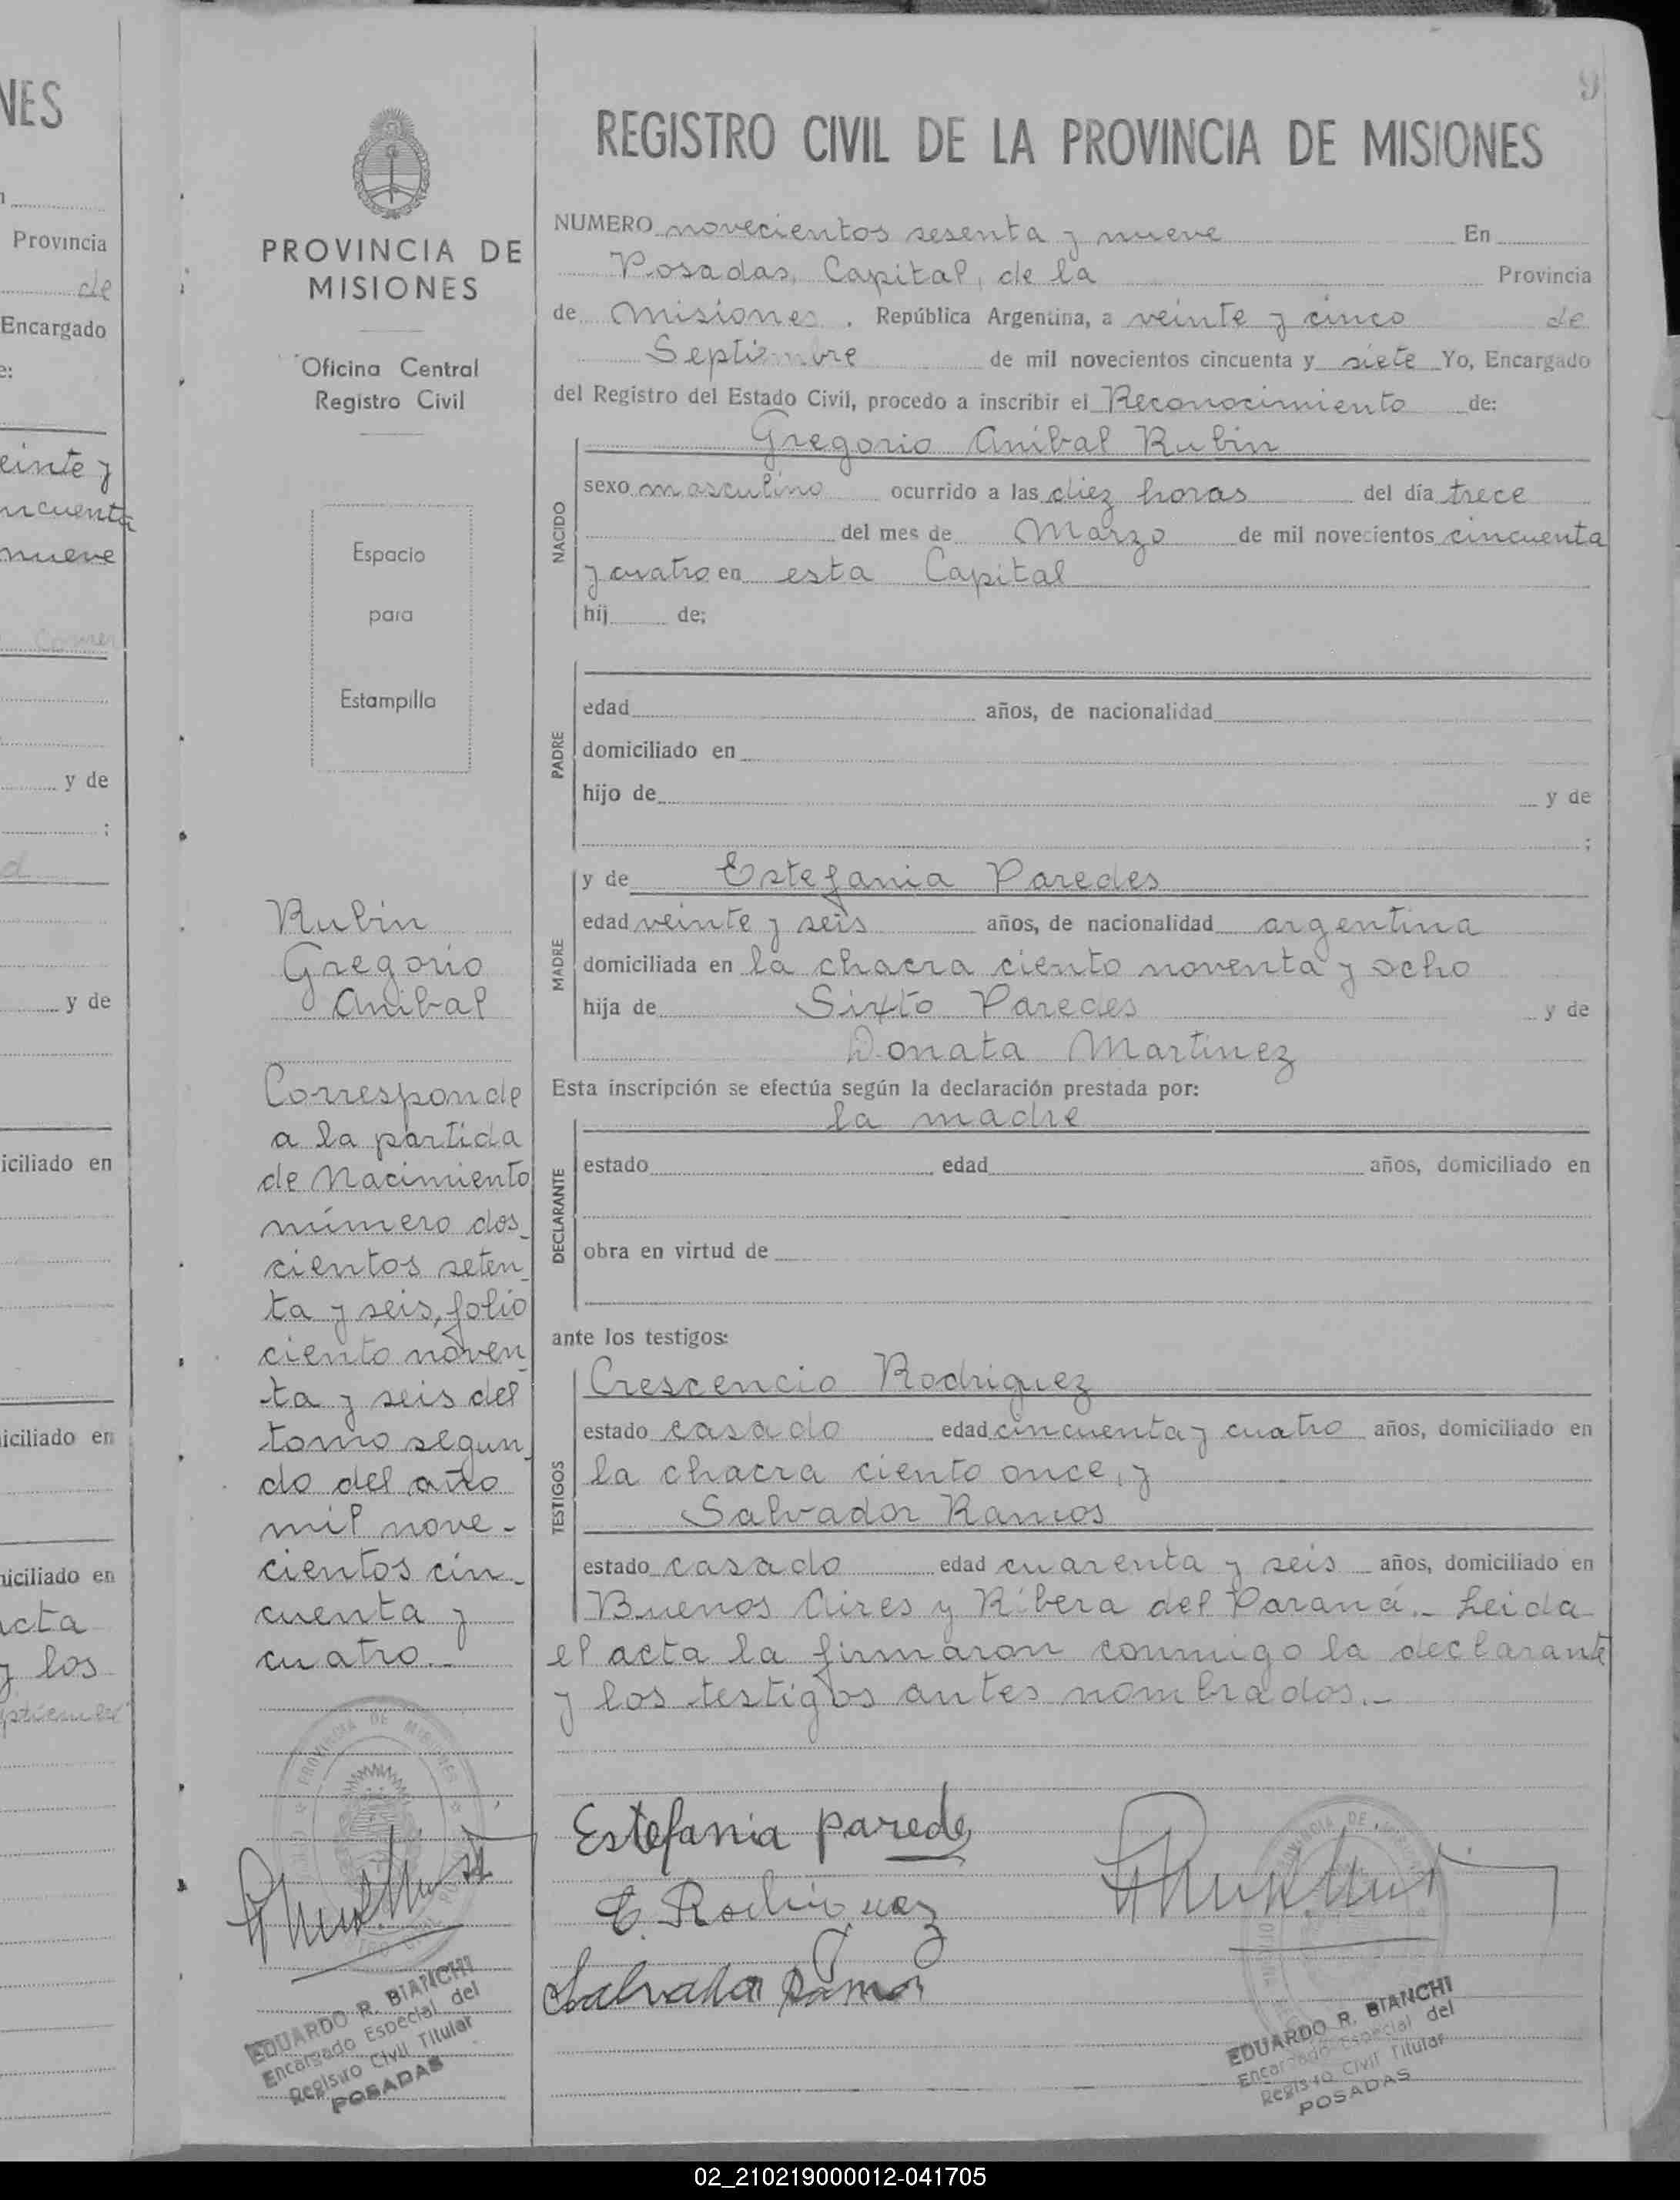 NES
Provincia
de
Encargado
e:
einte y
ncuenta
nueve
y de
:
d
y de
iciliado en
iciliado en
iciliado en
acta
y los
9
PROVINCIA DE
MISIONES
Oficina Central
Registro Civil
Espacio
para
Estampilla
Rubin
Gregorio
Anibal
Corresponde
a la partida
de Nacimiento
número dos_
cientos seten_
ta y seis, folio
ciento noven_
ta y seis del
tomo segun_
do del año
mil nove-
cientos cin_
cuenta y
cuatro._
PROVINCIA DE MISIONES
EDUARDO R. BIANCHI
Encargado Especial del
Registro Civil Titular
POSADAS
REGISTRO CIVIL DE LA PROVINCIA DE MISIONES
NUMERO novecientos sesenta y nueve En
Posadas, Capital, de la Provincia
de Misiones. República Argentina, a veinte y cinco de
Septiembre de mil novecientos cincuenta y siete Yo, Encargado
del Registro del Estado Civil, procedo a inscribir el Reconocimiento de:
Gregorio Aníbal Rubin
NACIDO
sexo masculino ocurrido a las diez horas del día trece
del mes de Marzo de mil novecientos cincuenta
y cuatro en esta Capital
hij de;
PADRE
edad años, de nacionalidad
domiciliado en
hijo de y de
;
MADRE
y de Estefania Paredes
edad veinte y seis años, de nacionalidad argentina
domiciliada en la chacra ciento noventa y ocho
hija de Sixto Paredes y de
Donata Martinez
Esta inscripción se efectúa según la declaración prestada por:
la madre
DECLARANTE
estado edad años, domiciliado en
obra en virtud de
ante los testigos:
TESTIGOS
Crescencio Rodriguez
estado casado edad cincuenta y cuatro años, domiciliado en
la chacra ciento once, y
Salvador Ramos
estado casado edad cuarenta y seis años, domiciliado en
Buenos Aires y Ribera del Paraná._ Leida
el acta la firmaron conmigo la declarante
y los testigos antes nombrados._
Estefania parede
C. Rodriguez
Salvador Ramos
EDUARDO R. BIANCHI
Encargado Especial del
Registro Civil Titular
POSADAS
02_210219000012-041705